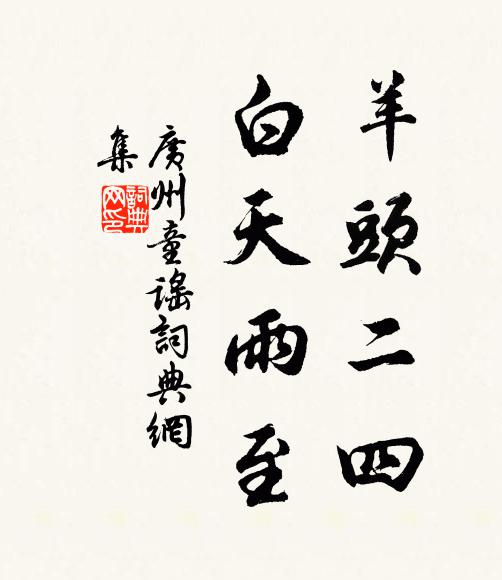 羊頭二四
白天雨至
廣州童謡詞典網
集
詞典网印